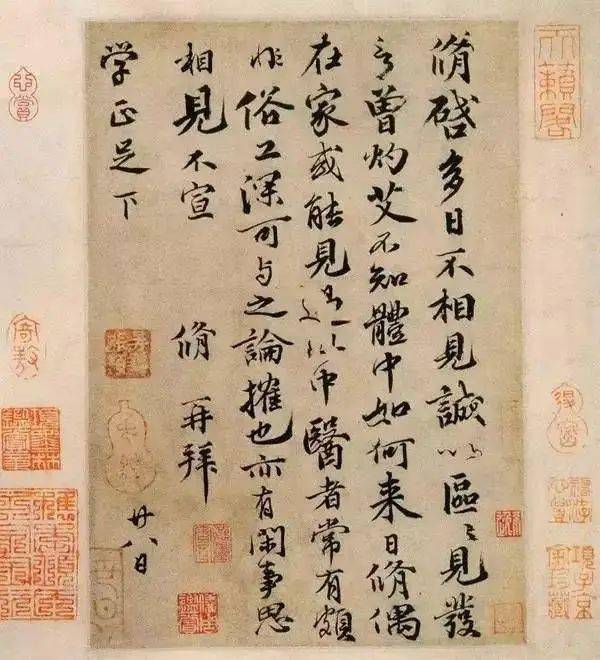 天籟閣
項子京家珍藏
脩啓多日不相見誠以區〻見發
言曾灼艾不知體中如何来日脩偶
在家或能見過此中醫者常有頗
非俗工深可与之論搉也亦有閑事思
相見不宣
脩再拜
廿八日
学正足下